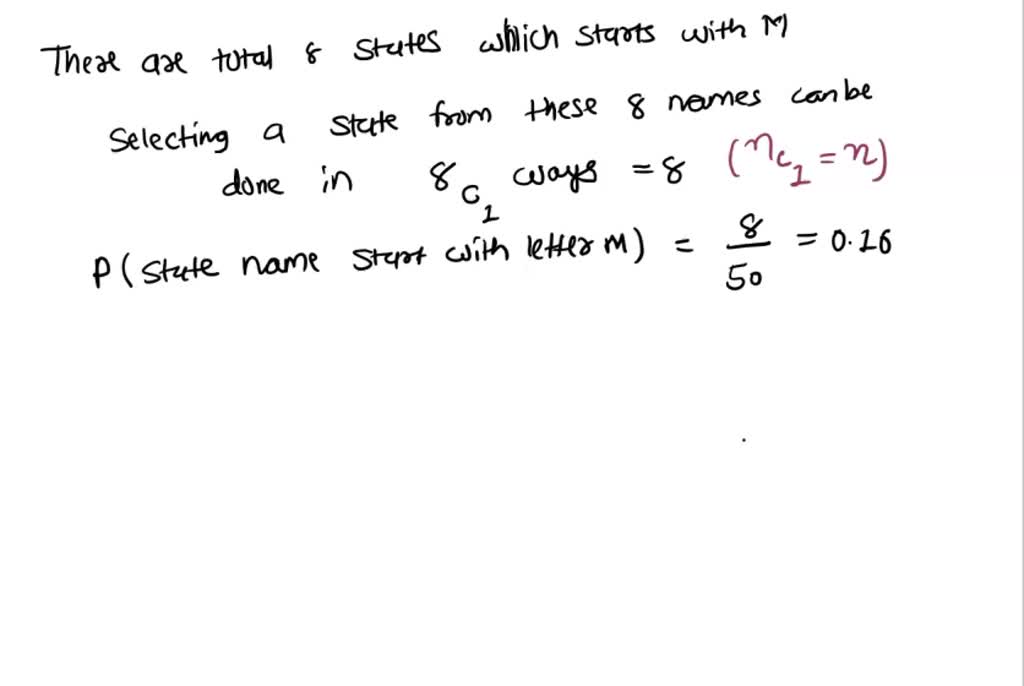 There are total 8 states which starts with M
Selecting a state from these 8 names can be
done in 8C1 ways = 8 (nC1 = n)
P(state name start with letter M) = 8/50 = 0.16